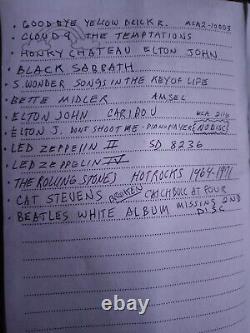 GOODBYE YELLOW BRICK R. MCA2-10003
CLOUD 9 THE TEMPTATIONS
HONKY CHATEAU ELTON JOHN
BLACK SABBATH
S. WONDER SONGS IN THE KEY OF LIFE
BETTE MIDLER
ELTON JOHN CARIBOU MCA 2116
ELTON J. DONT SHOOT ME - PIANO PLAYER (NO DISC)
LED ZEPPELIN II SD 8236
LED ZEPPELIN IV
THE ROLLING STONES HOTROCKS 1964-1971
CAT STEVENS CATCH BULL AT FOUR
BEATLES WHITE ALBUM MISSING 2ND DISC